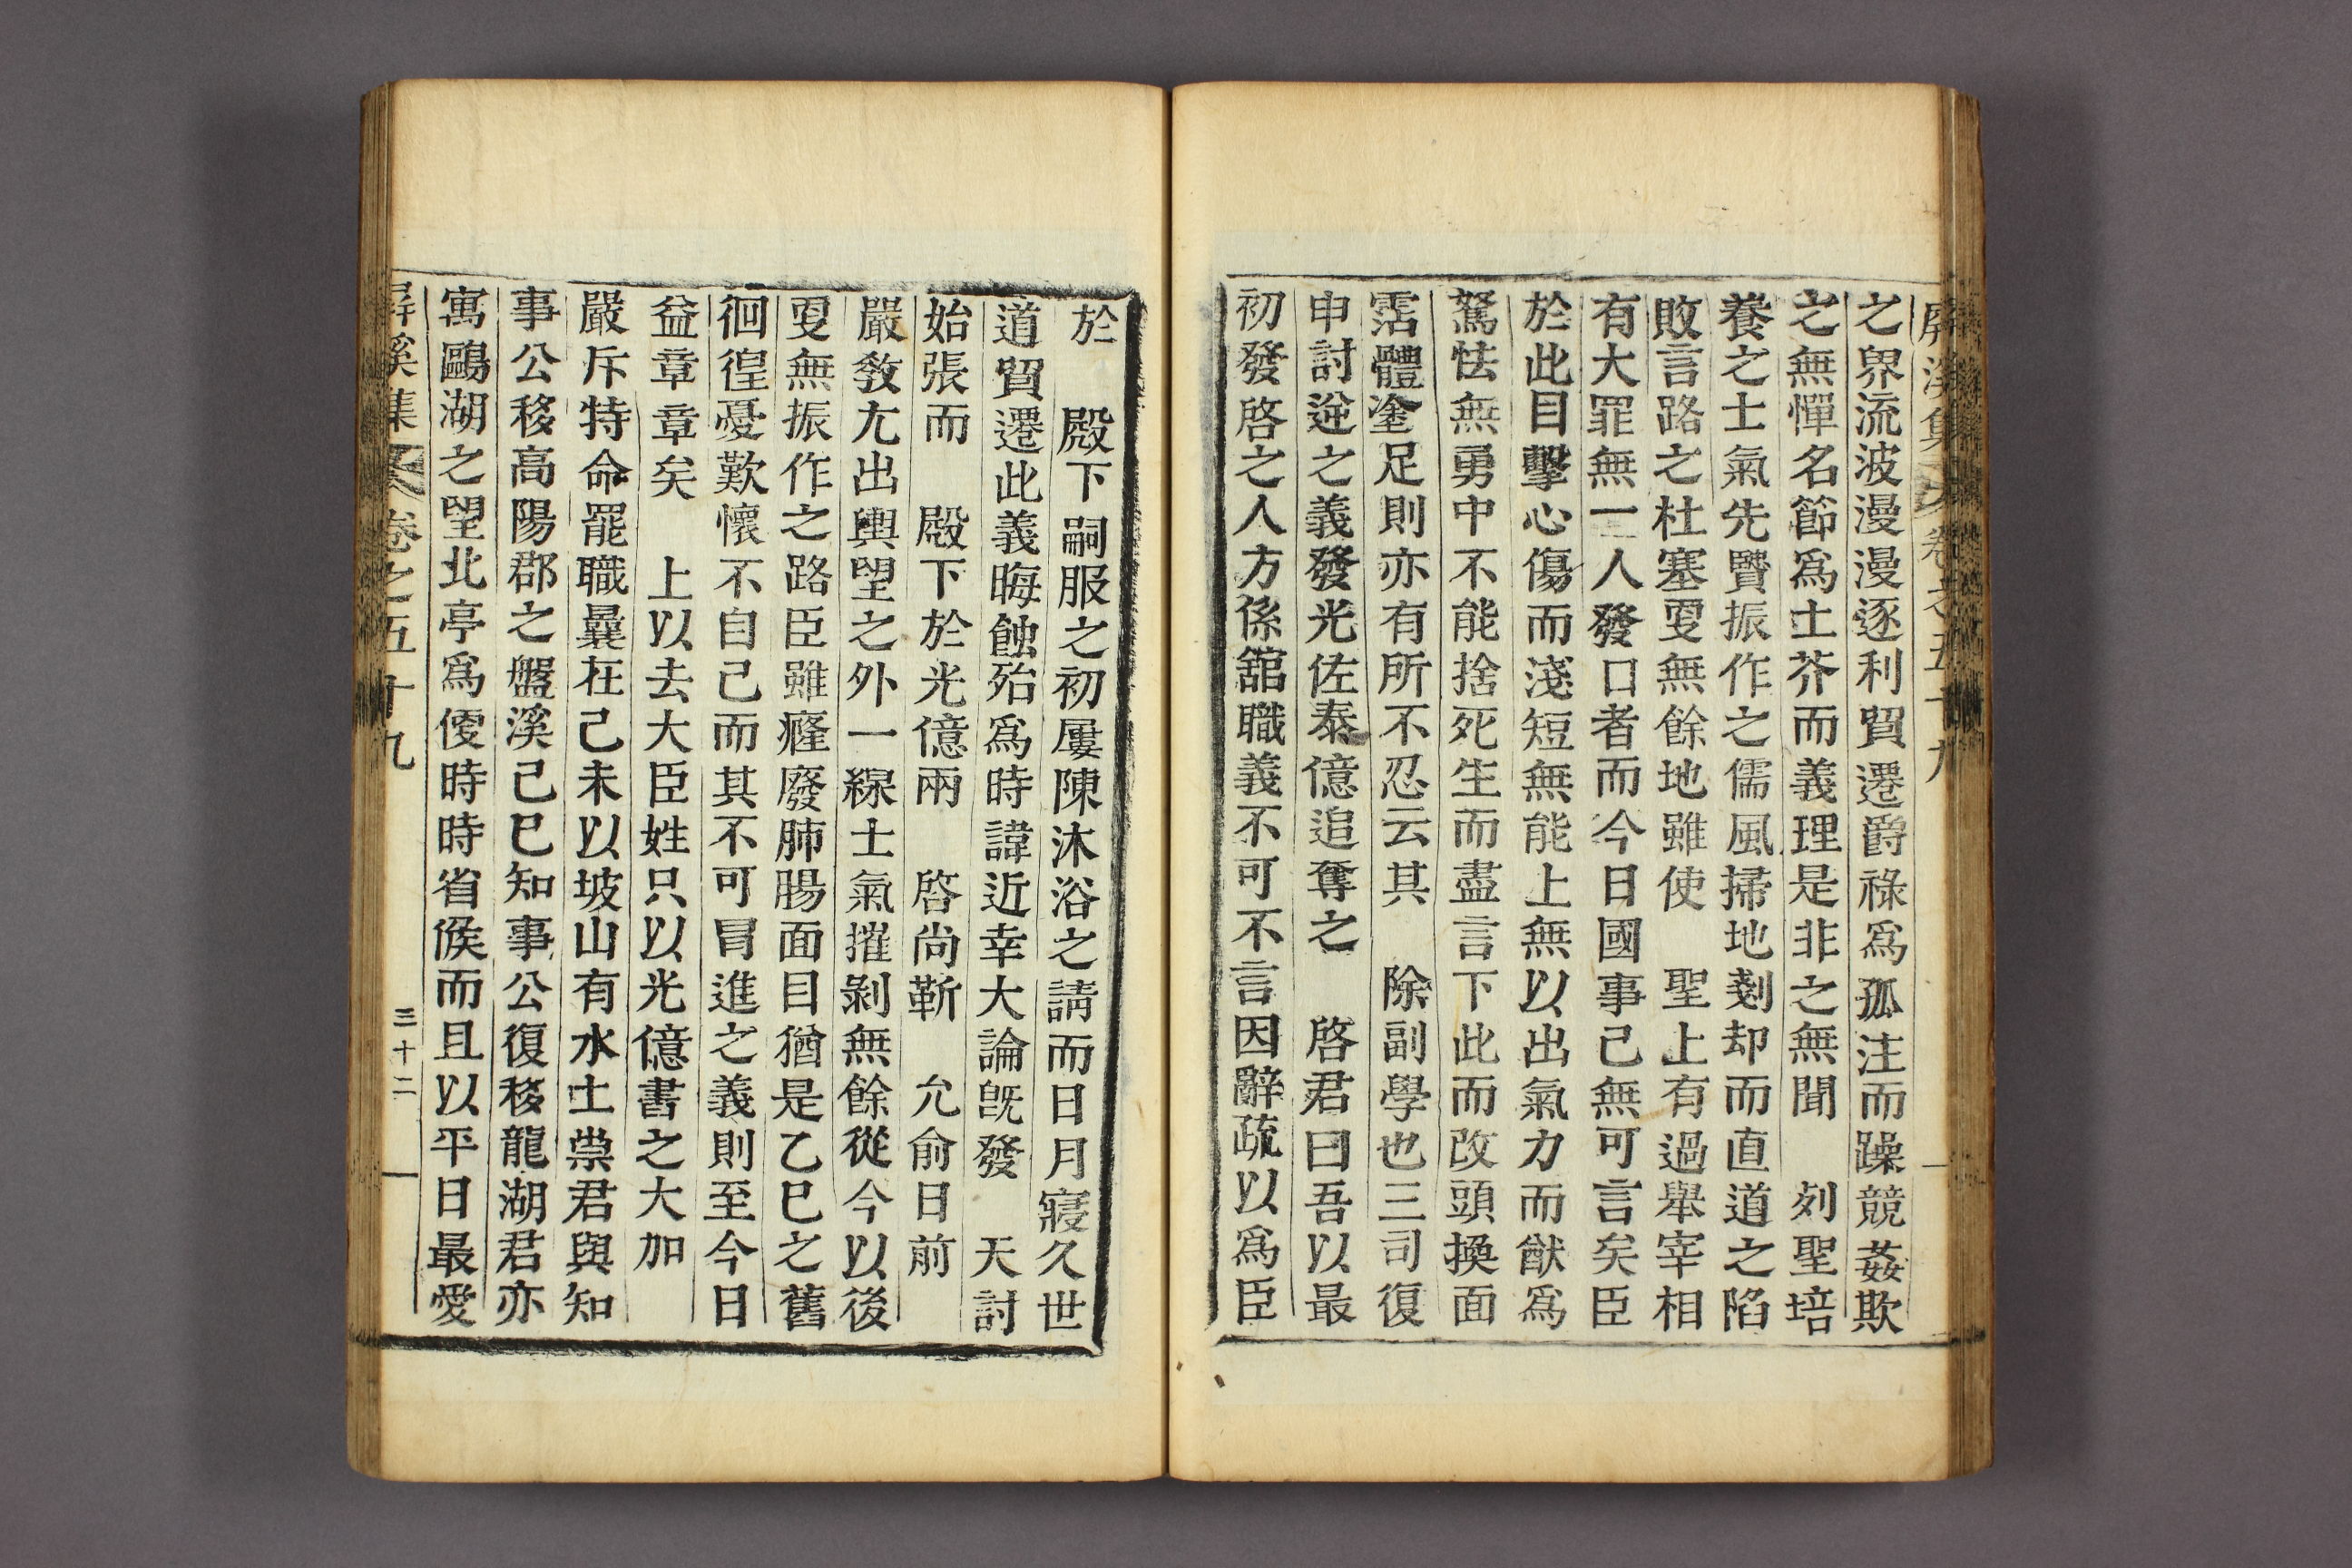 屛溪集 卷之五十九
之界流波漫漫逐利貿遷爵祿爲孤注而躁競姦欺
之無憚名節爲土芥而義理是非之無聞 列聖培
養之士氣先贒振作之儒風掃地剗却而直道之陷
敗言路之杜塞更無餘地雖使 聖上有過舉宰相
有大罪無一人發口者而今日國事已無可言矣臣
於此目擊心傷而淺短無能上無以出氣力而猷爲
駑怯無勇中不能捨死生而盡言下此而改頭換面
霑體塗足則亦有所不忍云其 除副學也三司復
申討逆之義發光佐泰億追奪之 啓君曰吾以最
初發啓之人方係舘職義不可不言因辭疏以爲臣
於 殿下嗣服之初屢陳沐浴之請而日月寢久世
道貿遷此義晦蝕殆爲時諱近幸大論旣發 天討
始張而 殿下於光億兩 啓尚靳 允俞日前
嚴敎尢出輿望之外一線士氣摧剝無餘從今以後
更無振作之路臣雖癃廢肺膓面目猶是乙巳之舊
徊徨憂歎懷不自己而其不可冒進之義則至今日
益章章矣 上以去大臣姓只以光億書之大加
嚴斥特命罷職曩在己未以坡山有水土祟君與知
事公移高陽郡之盤溪己巳知事公復移龍湖君亦
寓鷗湖之望北亭爲便時時省候而且以平日最愛
屛溪集 卷之五十九 三十二